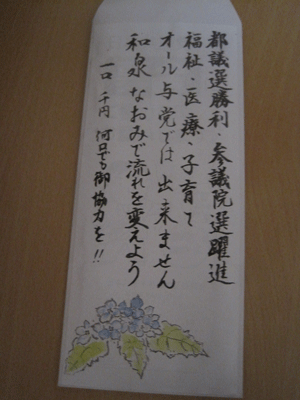 都議選勝利・参議院選躍進
福祉・医療・子育て
オール与党では出来ません
和泉なおみで流れを変えよう
一口 千円 何口でも御協力を!!